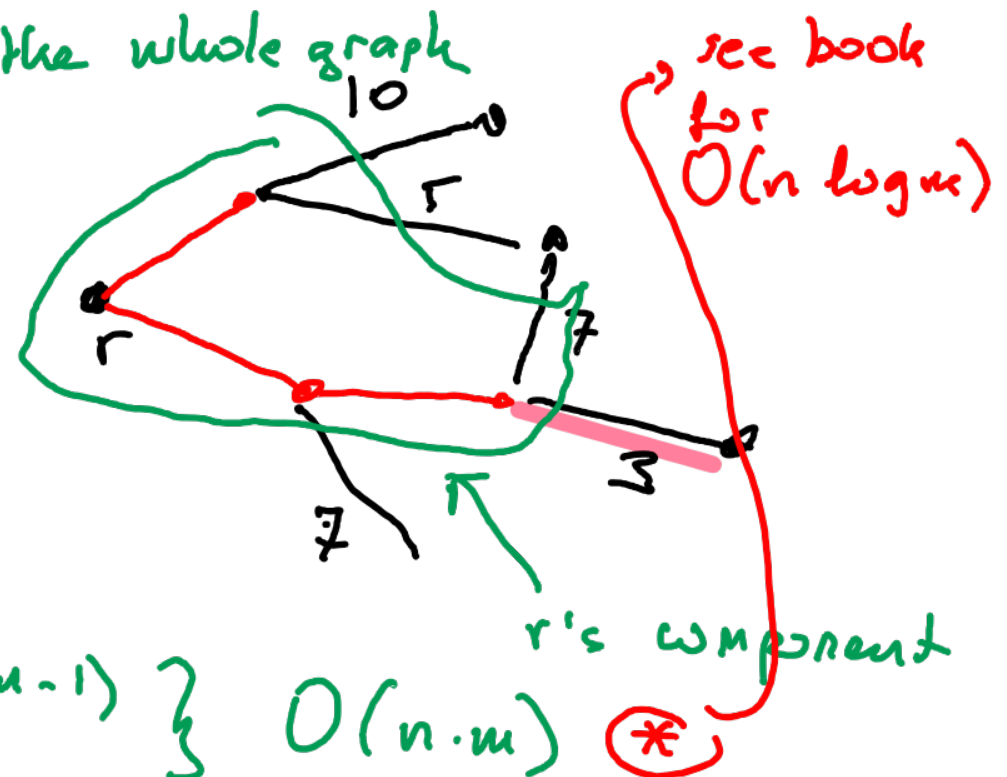 the whole graph
see book
for
O(n log m)
10
5
r
7
3
7
r's component
n-1) } O(n·m) *